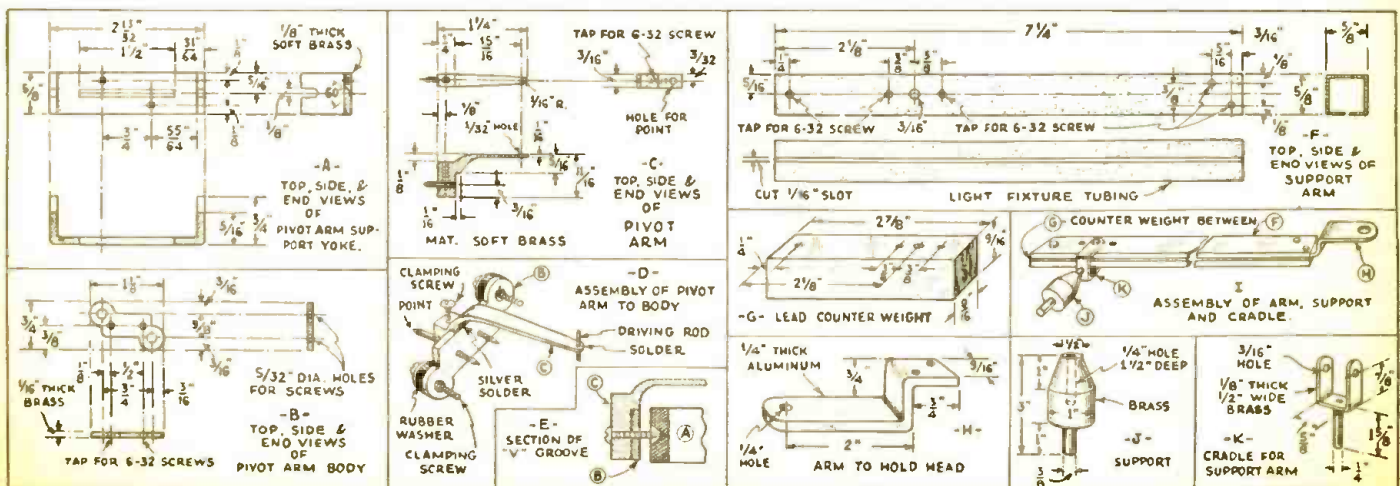 2 13/32"
1 1/2"
31/64
1/8" THICK
SOFT BRASS
5/16"
5/8"
60°
1/8"
3/4"
55/64
1/8"
-A-
TOP, SIDE, &
END VIEWS
OF
PIVOT ARM SUP-
PORT YOKE.
5/16"
3/4"
1 1/8"
3/16"
3/4"
3/8"
9/16"
3/16"
5/32" DIA. HOLES
FOR SCREWS
1/8"
1/2"
3/4"
3/16
1/16" THICK
BRASS
-B-
TOP, SIDE &
END VIEWS
OF
PIVOT ARM BODY
TAP FOR 6-32 SCREWS
1 1/4"
1/4"
15/16
TAP FOR 6-32 SCREW
3/16"
3/32
1/16" R.
HOLE FOR
POINT
1/8"
1/32" HOLE
1/16"
5/16"
11/16
-C-
TOP, SIDE &
END VIEWS
OF
PIVOT
ARM
1/8"
1/16
3/16"
MAT. SOFT BRASS
CLAMPING
SCREW
POINT
B
-D-
ASSEMBLY OF PIVOT
ARM TO BODY
DRIVING ROD
SOLDER
C
SILVER
SOLDER
RUBBER
WASHER
CLAMPING
SCREW
C
-E-
SECTION OF
"V" GROOVE
A
B
7 1/4"
2 1/8"
1/4"
3/8
5/8
5/16
3/16"
1/8"
5/8"
5/16
3/8"
5/8"
1/8"
TAP FOR 6-32 SCREW
3/16"
TAP FOR 6-32 SCREW
-F-
TOP, SIDE &
END VIEWS OF
SUPPORT
ARM
CUT 1/16" SLOT
LIGHT FIXTURE TUBING
2 7/8"
9/16"
1/4"
3/8"
3/8"
2 1/8"
9/16
-G- LEAD COUNTER WEIGHT
G
COUNTER WEIGHT BETWEEN
F
H
K
J
I
ASSEMBLY OF ARM, SUPPORT
AND CRADLE.
1/4" THICK
ALUMINUM
3/4"
9/16"
3/4"
-H-
2"
1/4"
HOLE
ARM TO HOLD HEAD
1/2"
1/4" HOLE
1 1/2" DEEP
1"
3"
1"
BRASS
1"
-J-
SUPPORT
3/8
3/16"
HOLE
1/8" THICK
1/2" WIDE
BRASS
7/8"
5/8"
1 5/8"
-K-
CRADLE FOR
SUPPORT ARM
1/4"